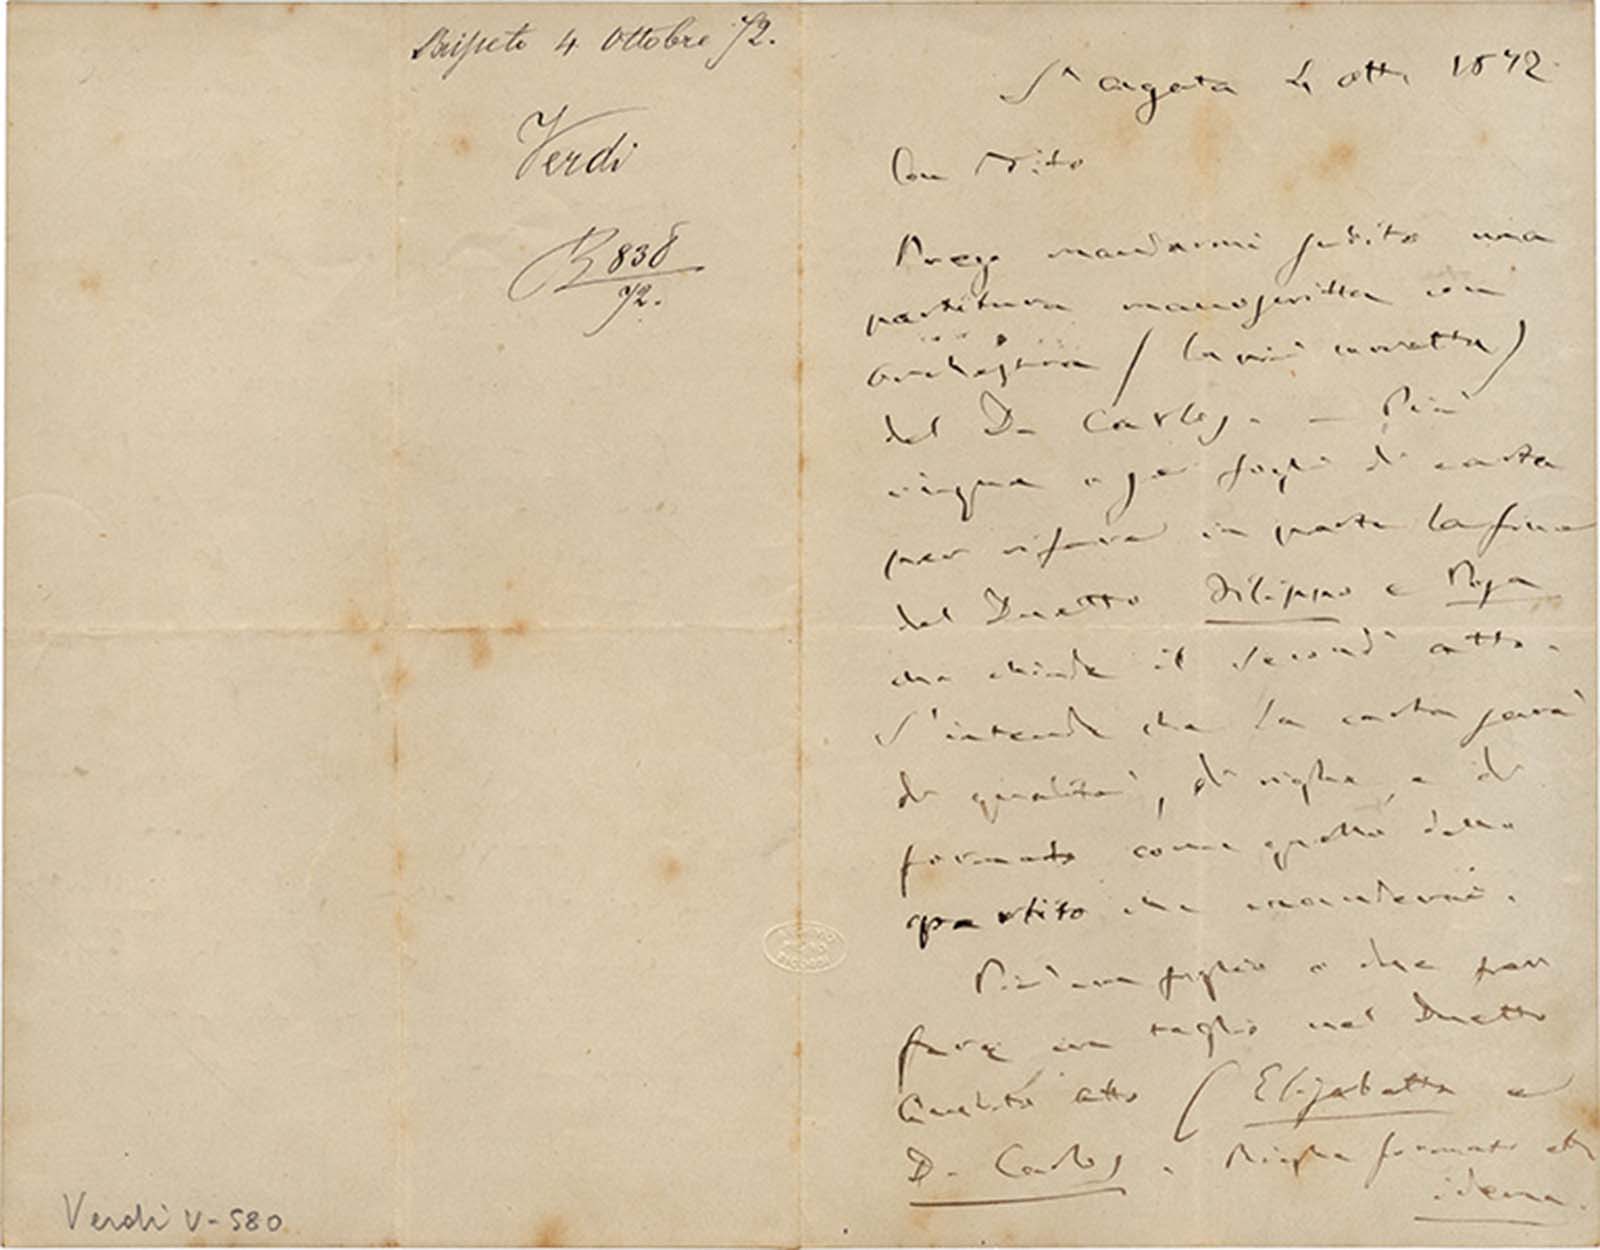 Busseto 4 Ottobre 72.
Verdi
R 838
72.
Verdi V-580
St agata 4 ott 1872
Car Tito
Prego mandarmi subito una
partitura manoscritta con
orchestra (la più corretta)
del D. Carlos. — Più
cinque o sei fogli di carta
per rifare in parte la fine
del Duetto Filippo e Posa
che chiude il secondo atto.
S'intende che la carta sarà
di qualità, di righe, e di
formato come quella dello
spartito che manderai.
Più un foglio o due per
fare un taglio nel Duetto
Quinto atto (Elisabetta e
D. Carlos. Righe formato etc
idem.